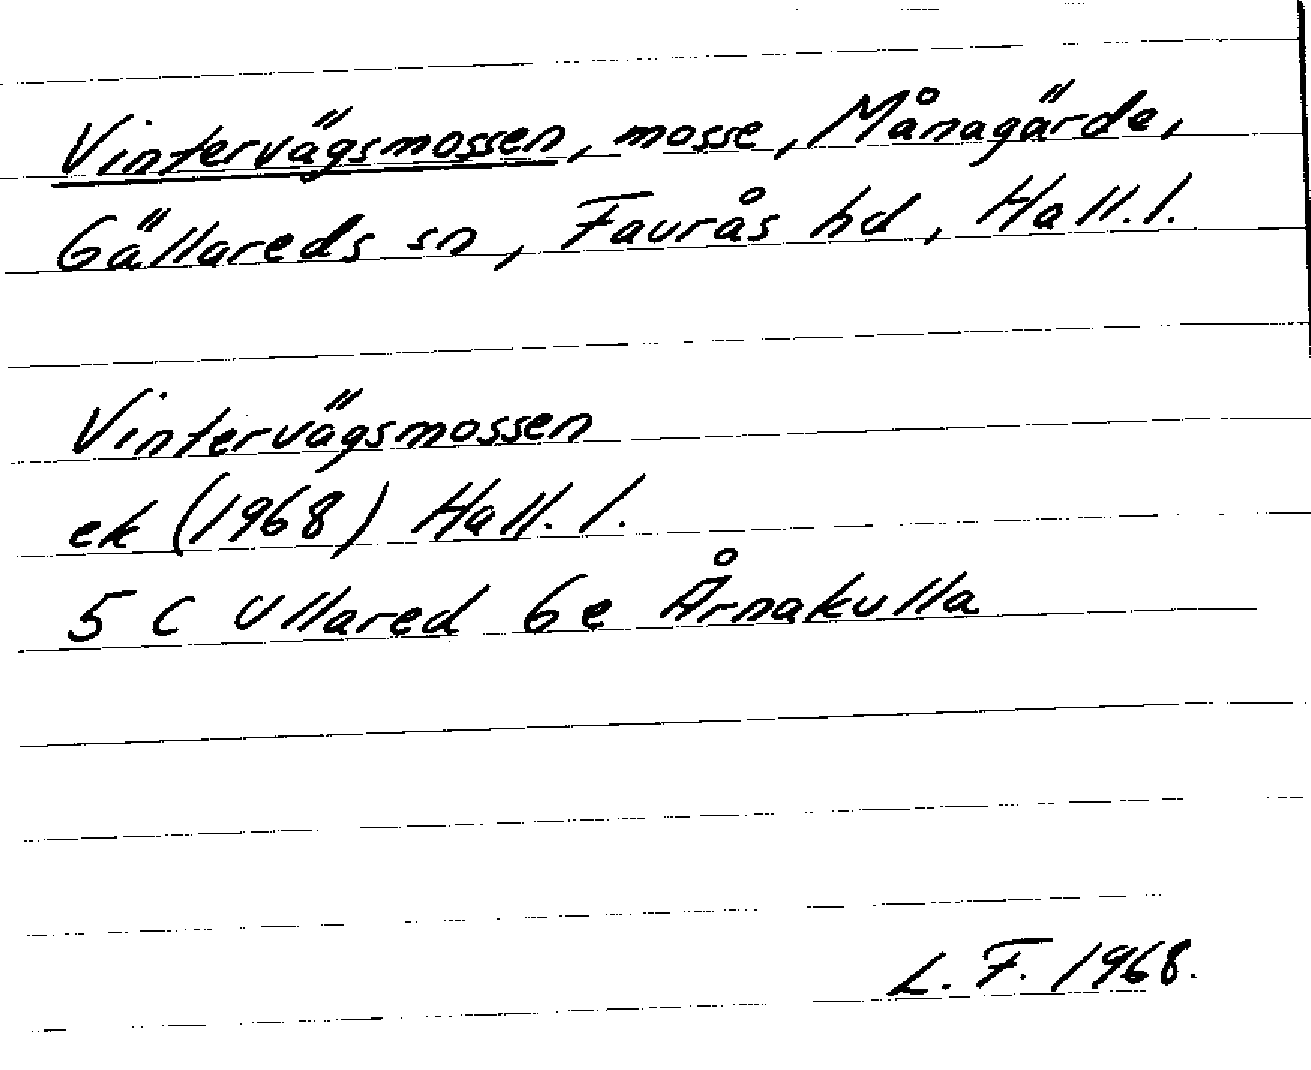 Vintervägsmossen, mosse, Månagärde,
Gällareds sn, Faurås hd, Hall.l.
Vintervägsmossen
ek (1968) Hall.l.
5 C Ullared 6e Årnakulla
L.F. 1968.